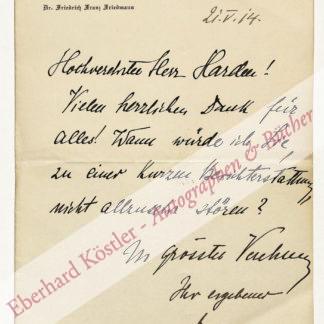 Dr. Friedrich Franz Friedmann
21.V.14.
Hochverehrter Herr Harden!
Vielen herzlichen Dank für
alles! Wann würde ich Sie,
zu einer kurzen Berichterstattung
nicht allzusehr stören?
In grösster Verehrung
Ihr ergebener
Eberhard Köstler - Autographen & Bücher